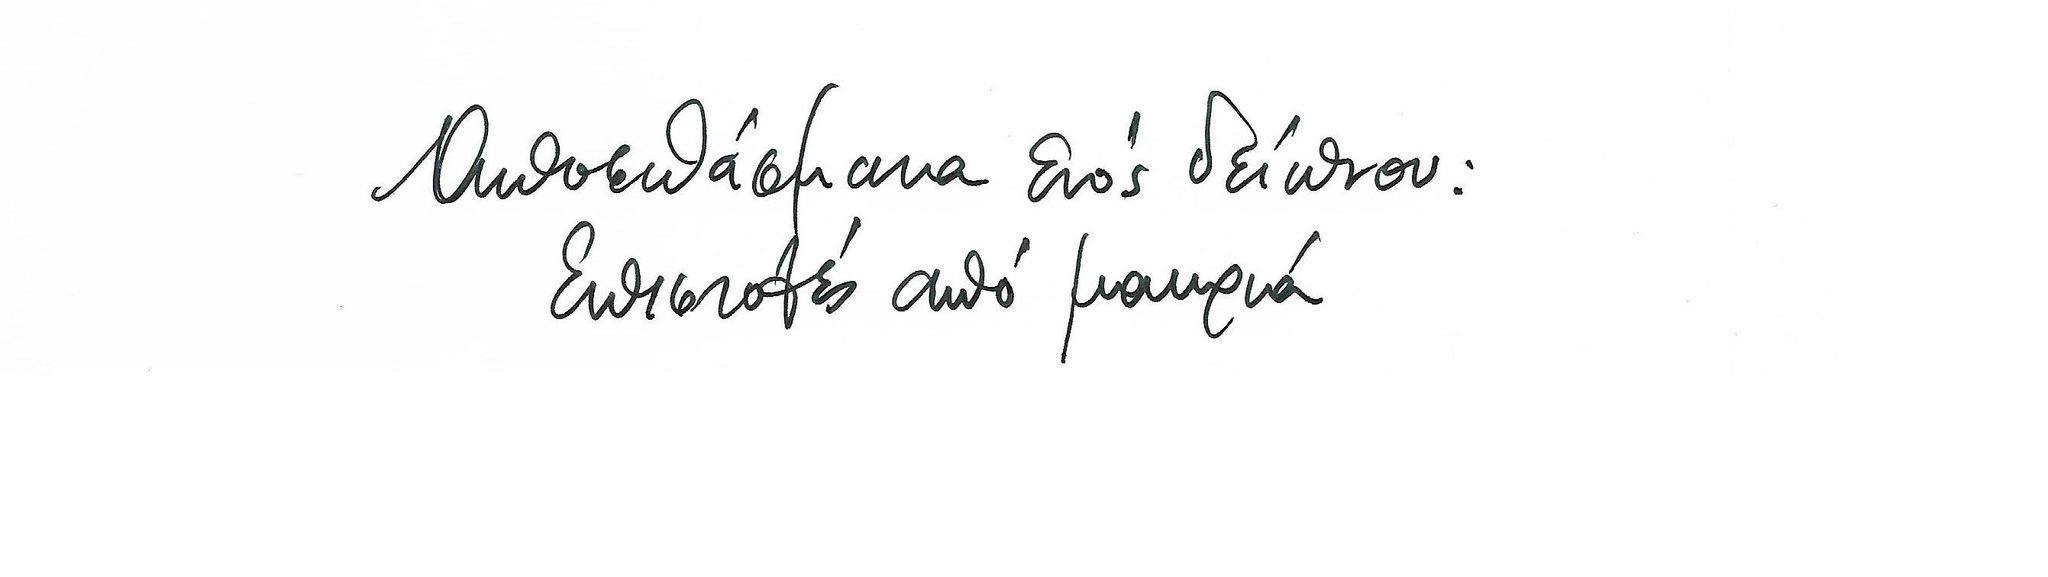 Αποσπάσματα ενός δείπνου:
Επιστολές από μακριά